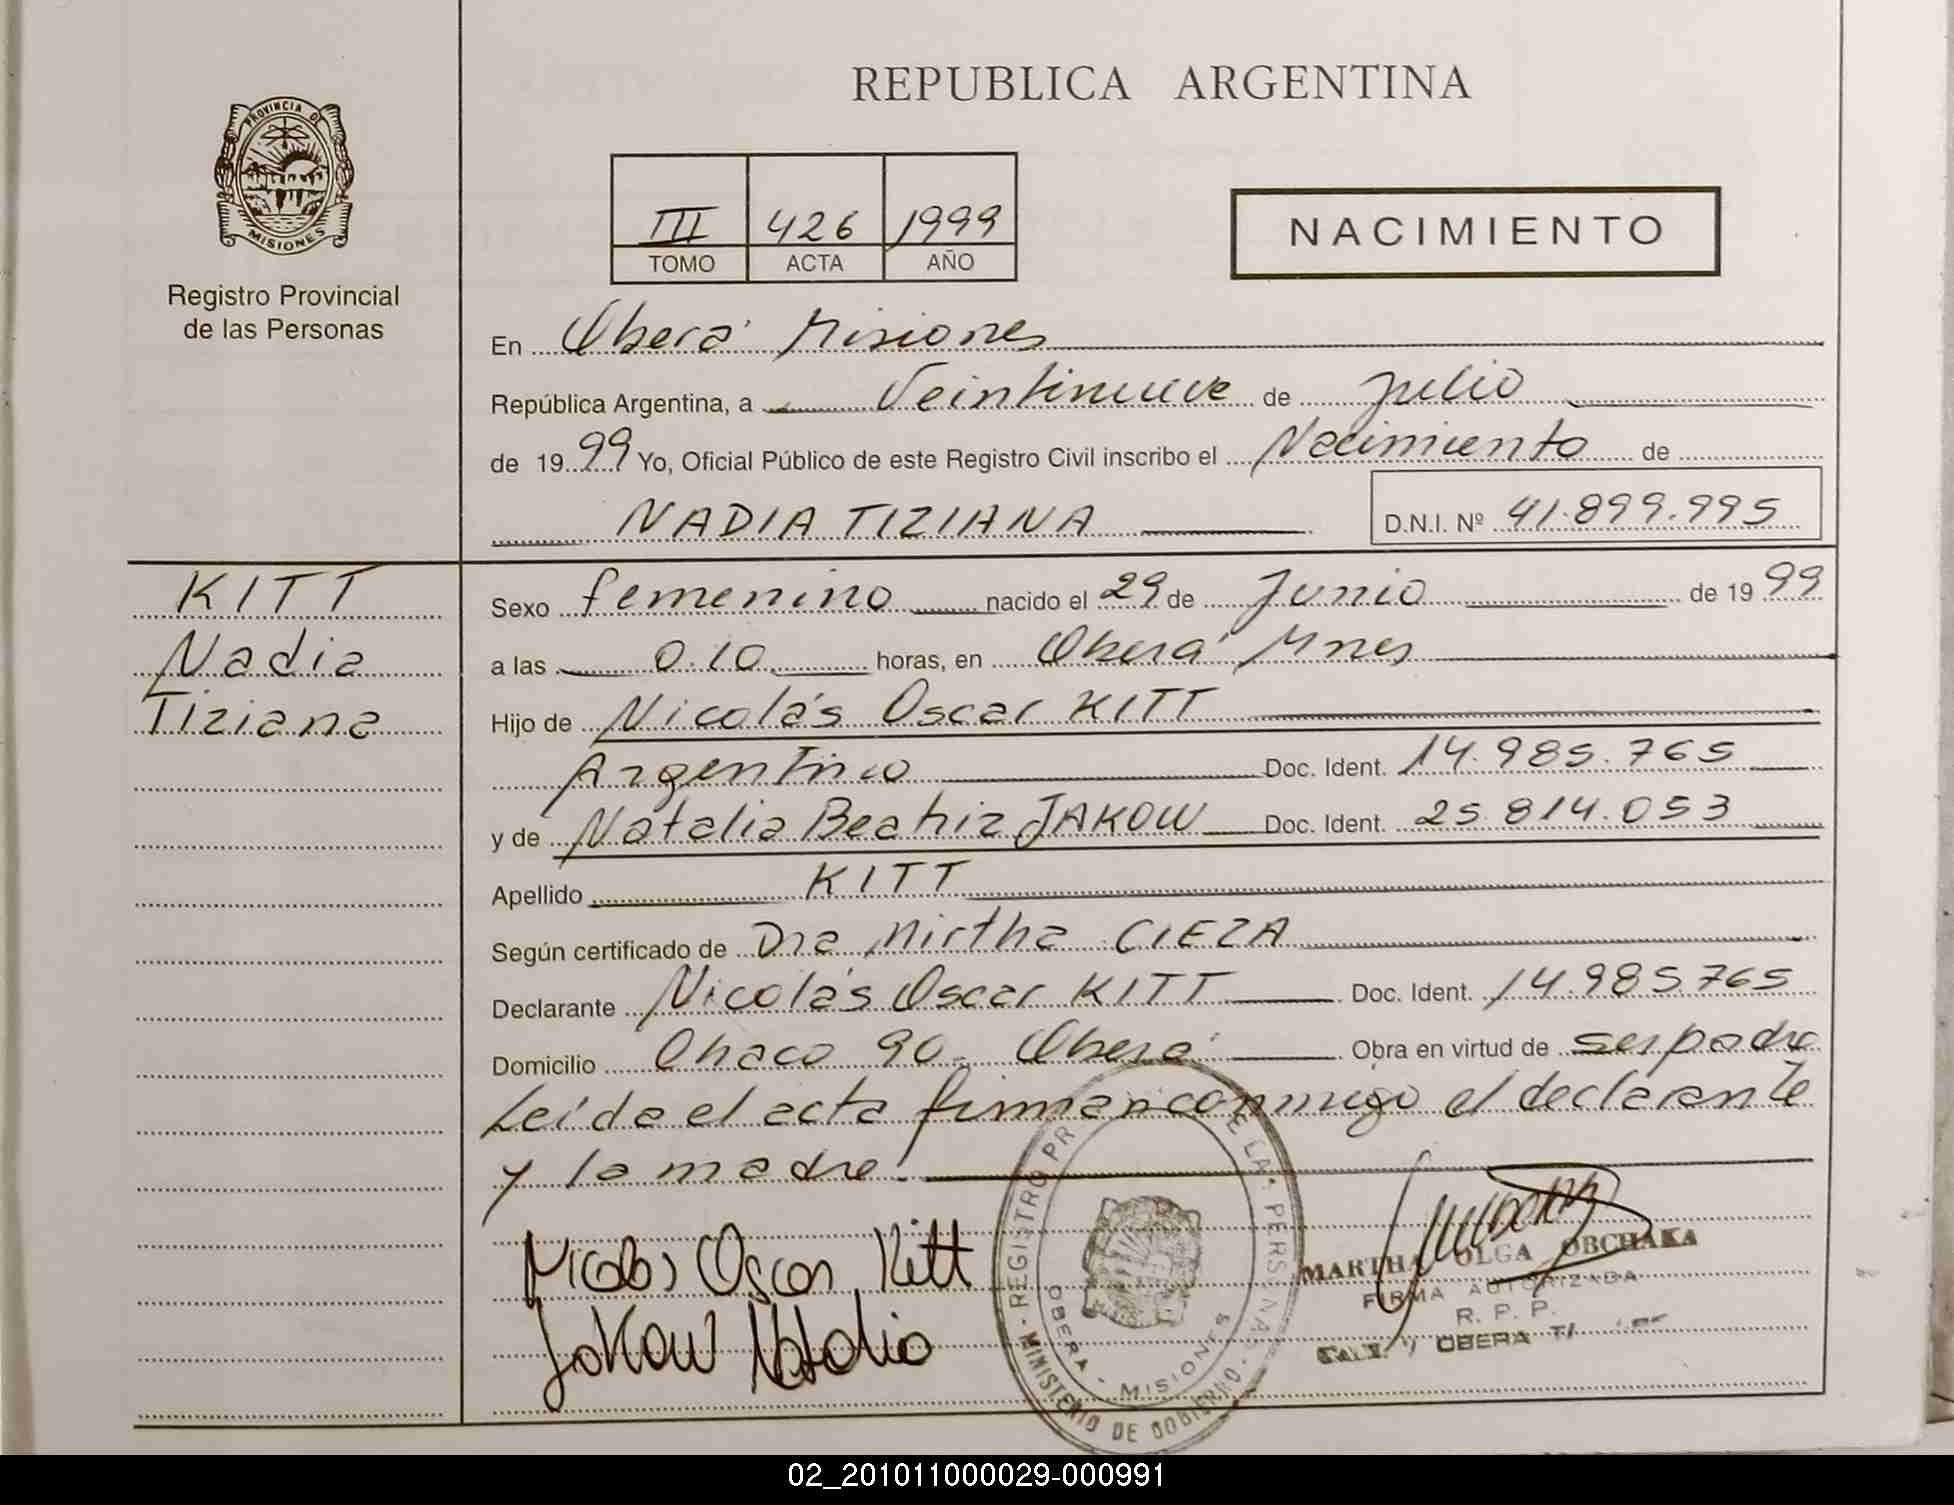 REPUBLICA ARGENTINA
PROVINCIA DE
MISIONES
Registro Provincial
de las Personas
III 426 1999
TOMO ACTA AÑO
NACIMIENTO
En Oberá Misiones
República Argentina, a Veintinueve de Julio
de 1999 Yo, Oficial Público de este Registro Civil inscribo el Nacimiento de
NADIA TIZIANA D.N.I. Nº 41.899.995
KITT
Nadia
Tiziana
Sexo femenino nacido el 29 de Junio de 1999
a las 0.10 horas, en Oberá Mnes
Hijo de Nicolás Oscar KITT
Argentino Doc. Ident. 14.985.765
y de Natalia Beatriz JAKOW Doc. Ident. 25.814.053
Apellido KITT
Según certificado de Dra Mirtha CIEZA
Declarante Nicolás Oscar KITT Doc. Ident. 14.985.765
Domicilio Chaco 90 - Oberá Obra en virtud de ser padre
Leída el acta firman conmigo el declarante
y la madre.
Nicolas Oscar Kitt
Jakow Natalia
REGISTRO DE LAS PERSONAS
OBERA - MISIONES
MINISTERIO DE GOBIERNO
MARTHA OLGA OBCHAKA
FIRMA AUTORIZADA
R. P. P.
OBERA
02_201011000029-000991